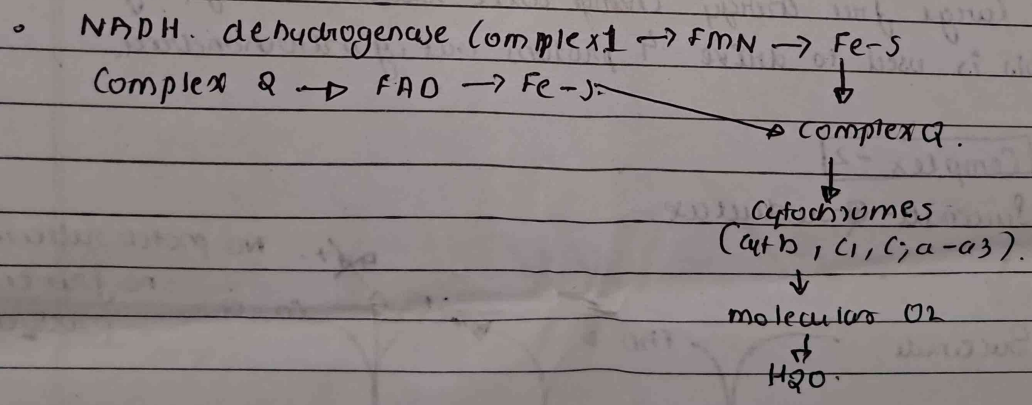 NADH. dehydrogenase Complex1 → FMN → Fe-S
Complex 2 → FAD → Fe-S
↓
→ Complex Q.
↓
Cytochromes
(Cyt b, C1, C, a-a3).
↓
molecular O2
↓
H2O.